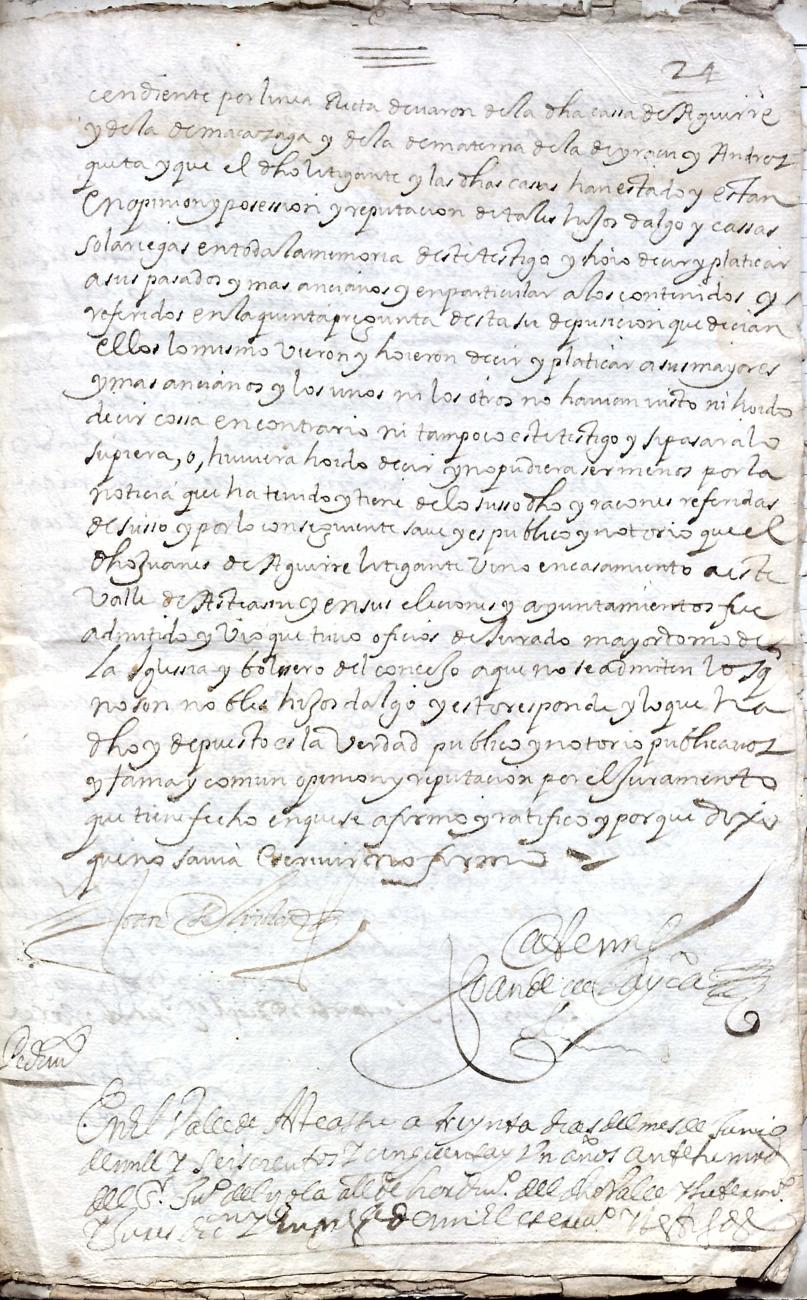 24
cendiente por linea Recta de varon de la dha cassa de Aguirre
y de la de macazaga y de la de materna de la de yracu y Andrez
queta y que el dho litigante y las dhas casas han estado y estan
en opinion y posession y reputacion de tales hijos dalgo y cassas
solariegas en toda la memoria deste testigo y hoio decir y platicar
a sus pasados y mas ancianos y en particular a los contenidos y
referidos en la quinta pregunta desta su deposicion que decian
ellos lo mismo vieron y hoieron decir y platicar a sus mayores
y mas ancianos y los unos ni los otros no havian visto ni hoido
decir cossa en contrario ni tampoco este testigo y si pasara lo
supiera, o, huviera hoido decir y no pudiera ser menos por la
noticia que ha tenido y tiene de lo susso dho y racones referidas
de susso y por lo consiguiente save y es publico y notorio que el
dho Juanes de Aguirre litigante vino en casamiento a este
Valle de Asteasu y en sus eleciones y ayuntamientos fue
admitido y vio que tuvo oficios de Jurado mayordomo de
la Iglessia y bolsero del concejo a que no se admiten los q
no son nobles hijos dalgo y esto responde y lo que ha
dho y depuesto es la Verdad publico y notorio publica voz
y fama y comun opinion y reputacion por el Juramento
que tiene fecho en que se afirmo y ratifico y porque dixo
que no savia escrevir no firmo
Joan de
Ante mi
Joan de
En el Valle de Asteassu a treynta dias del mes de Junio
de mill y seiscientos y cinquenta y Un años ante su md
del Sr. Juº del yola allde hordinº. del dho Valle